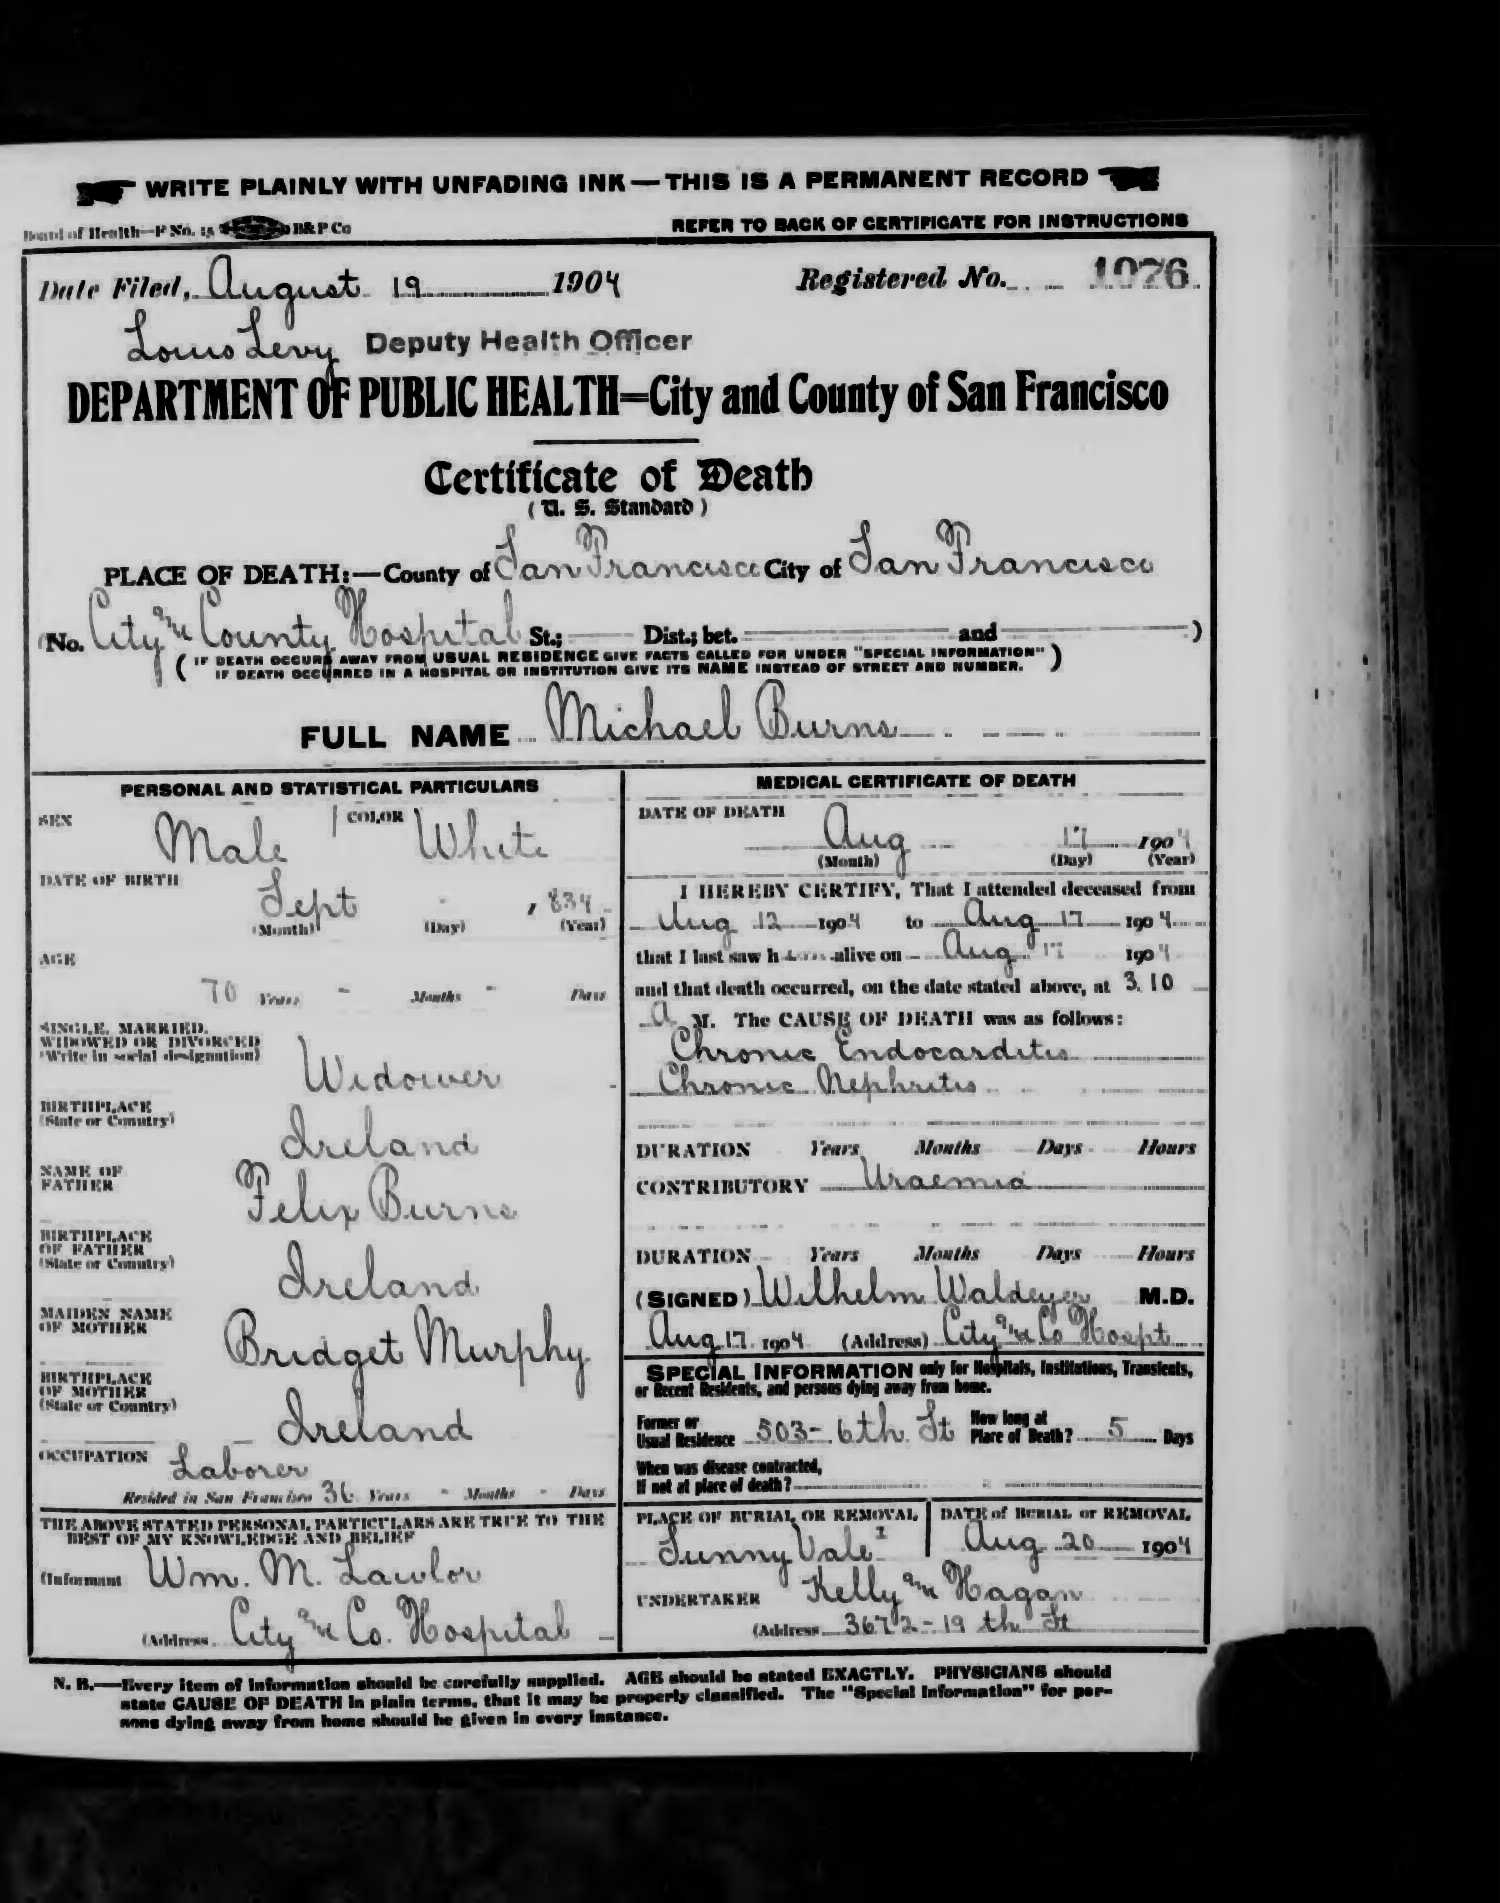 WRITE PLAINLY WITH UNFADING INK—THIS IS A PERMANENT RECORD
Board of Health—F No. 15 B&P Co
REFER TO BACK OF CERTIFICATE FOR INSTRUCTIONS
Date Filed, August 19 1904 Registered No. 1076
Louis Levy Deputy Health Officer
DEPARTMENT OF PUBLIC HEALTH=City and County of San Francisco
Certificate of Death
( U. S. Standard )
PLACE OF DEATH:—County of San Francisco City of San Francisco
(No. City and County Hospital St.; Dist.; bet. and )
( IF DEATH OCCURS AWAY FROM USUAL RESIDENCE GIVE FACTS CALLED FOR UNDER "SPECIAL INFORMATION" )
IF DEATH OCCURRED IN A HOSPITAL OR INSTITUTION GIVE ITS NAME INSTEAD OF STREET AND NUMBER.
FULL NAME Michael Burns
PERSONAL AND STATISTICAL PARTICULARS
SEX Male COLOR White
DATE OF BIRTH
Sept - , 834
(Month) (Day) (Year)
AGE
70 Years - Months - Days
SINGLE, MARRIED,
WIDOWED OR DIVORCED
(Write in social designation)
Widower
BIRTHPLACE
(State or Country)
Ireland
NAME OF
FATHER
Felix Burns
BIRTHPLACE
OF FATHER
(State or Country)
Ireland
MAIDEN NAME
OF MOTHER
Bridget Murphy
BIRTHPLACE
OF MOTHER
(State or Country)
Ireland
OCCUPATION Laborer
Resided in San Francisco 36 Years - Months - Days
THE ABOVE STATED PERSONAL PARTICULARS ARE TRUE TO THE
BEST OF MY KNOWLEDGE AND BELIEF
(Informant Wm. M. Lawlor
(Address City and Co. Hospital
MEDICAL CERTIFICATE OF DEATH
DATE OF DEATH
Aug 17 1904
(Month) (Day) (Year)
I HEREBY CERTIFY, That I attended deceased from
Aug 12 1904 to Aug 17 1904
that I last saw h alive on Aug 17 1904
and that death occurred, on the date stated above, at 3.10
A M. The CAUSE OF DEATH was as follows:
Chronic Endocarditis
Chronic Nephritis
DURATION Years Months Days Hours
CONTRIBUTORY Uraemia
DURATION Years Months Days Hours
(SIGNED) Wilhelm Waldeyer M.D.
Aug 17 1904 (Address) City and Co Hospt
SPECIAL INFORMATION only for Hospitals, Institutions, Transients,
or Recent Residents, and persons dying away from home.
Former or
Usual Residence 503-6th St
How long at
Place of Death? 5 Days
When was disease contracted,
If not at place of death?
PLACE OF BURIAL OR REMOVAL
Sunny Vale
DATE of BURIAL or REMOVAL
Aug 20 1904
UNDERTAKER Kelly and Hagan
(Address 3672-19th St
N. B.—Every item of information should be carefully supplied. AGE should be stated EXACTLY. PHYSICIANS should
state CAUSE OF DEATH in plain terms, that it may be properly classified. The "Special Information" for per-
sons dying away from home should be given in every instance.